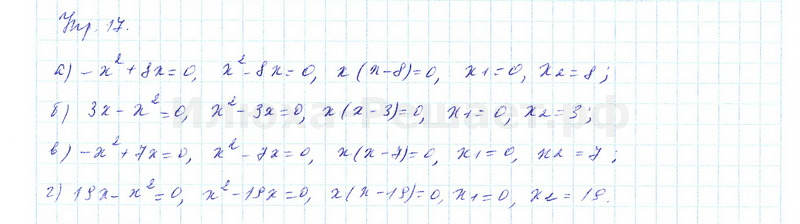 Упр. 17.
а) -x² + 8x = 0, x² - 8x = 0, x(x-8) = 0, x1 = 0, x2 = 8;
б) 3x - x² = 0, x² - 3x = 0, x(x-3) = 0, x1 = 0, x2 = 3;
Илюха-Решает.рф
в) -x² + 7x = 0, x² - 7x = 0, x(x-7) = 0, x1 = 0, x2 = 7;
г) 19x - x² = 0, x² - 19x = 0, x(x-19) = 0, x1 = 0, x2 = 19.